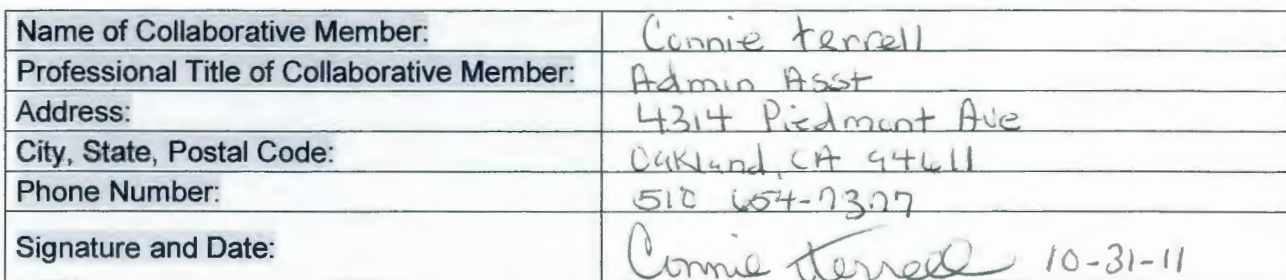 Name of Collaborative Member: Connie terrell
Professional Title of Collaborative Member: Admin Asst
Address: 4314 Piedmont Ave
City, State, Postal Code: Oakland, CA 94611
Phone Number: 510 654-7377
Signature and Date: Connie Terrell 10-31-11